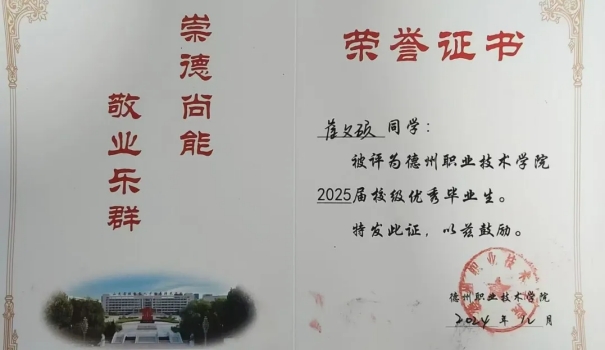 崇德尚能
敬业乐群
荣誉证书
薛文硕 同学：
被评为德州职业技术学院
2025届校级优秀毕业生。
特发此证，以兹鼓励。
德州职业技术学院
2024 年 12 月